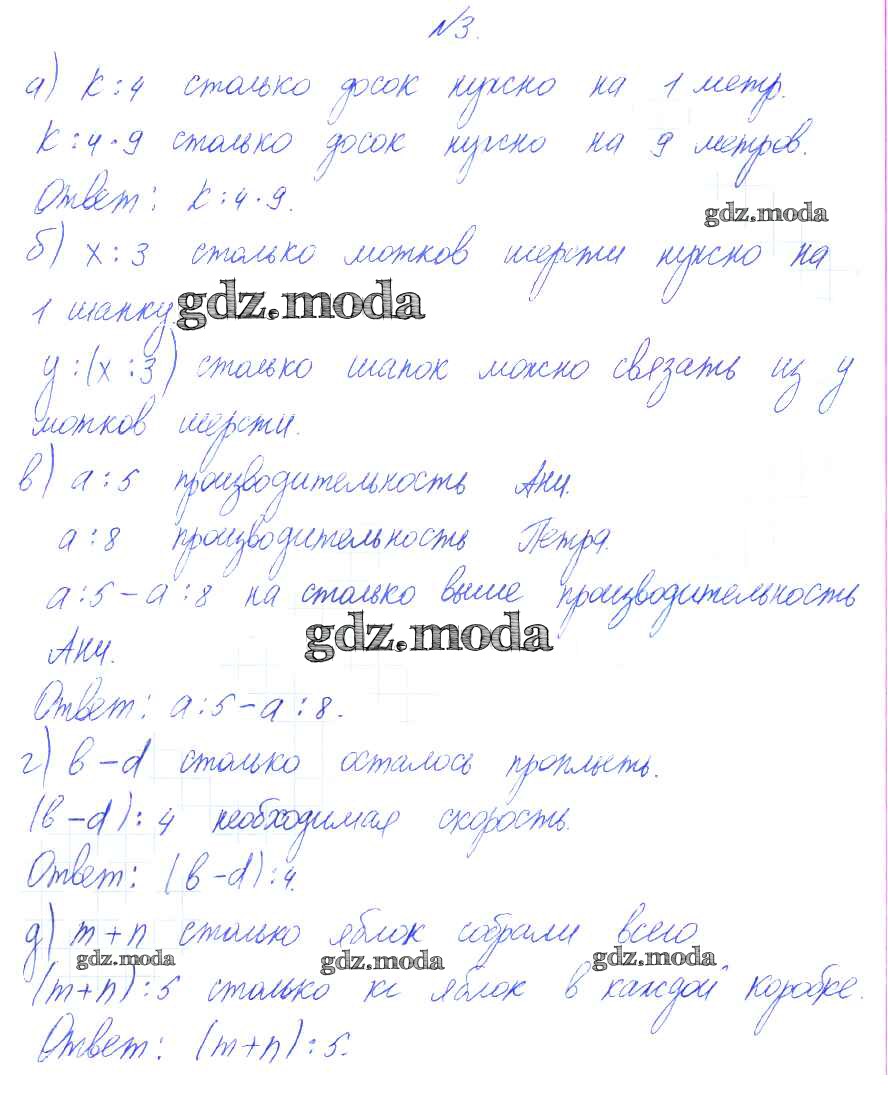 №3.
а) к:4 столько досок нужно на 1 метр.
к:4·9 столько досок нужно на 9 метров.
Ответ: к:4·9.
gdz.moda
б) х:3 столько мотков шерсти нужно на
1 шапку
gdz.moda
у:(х:3) столько шапок можно связать из у
мотков шерсти.
в) а:5 производительность Ани.
а:8 производительность Петра.
а:5-а:8 на столько выше производительность
gdz.moda
Ани.
Ответ: а:5-а:8.
г) в-d столько осталось проплыть.
(в-d):4 необходимая скорость.
Ответ: (в-d):4.
д) m+n столько яблок собрали всего
gdz.moda gdz.moda gdz.moda
(m+n):5 столько кг яблок в каждой коробке.
Ответ: (m+n):5.